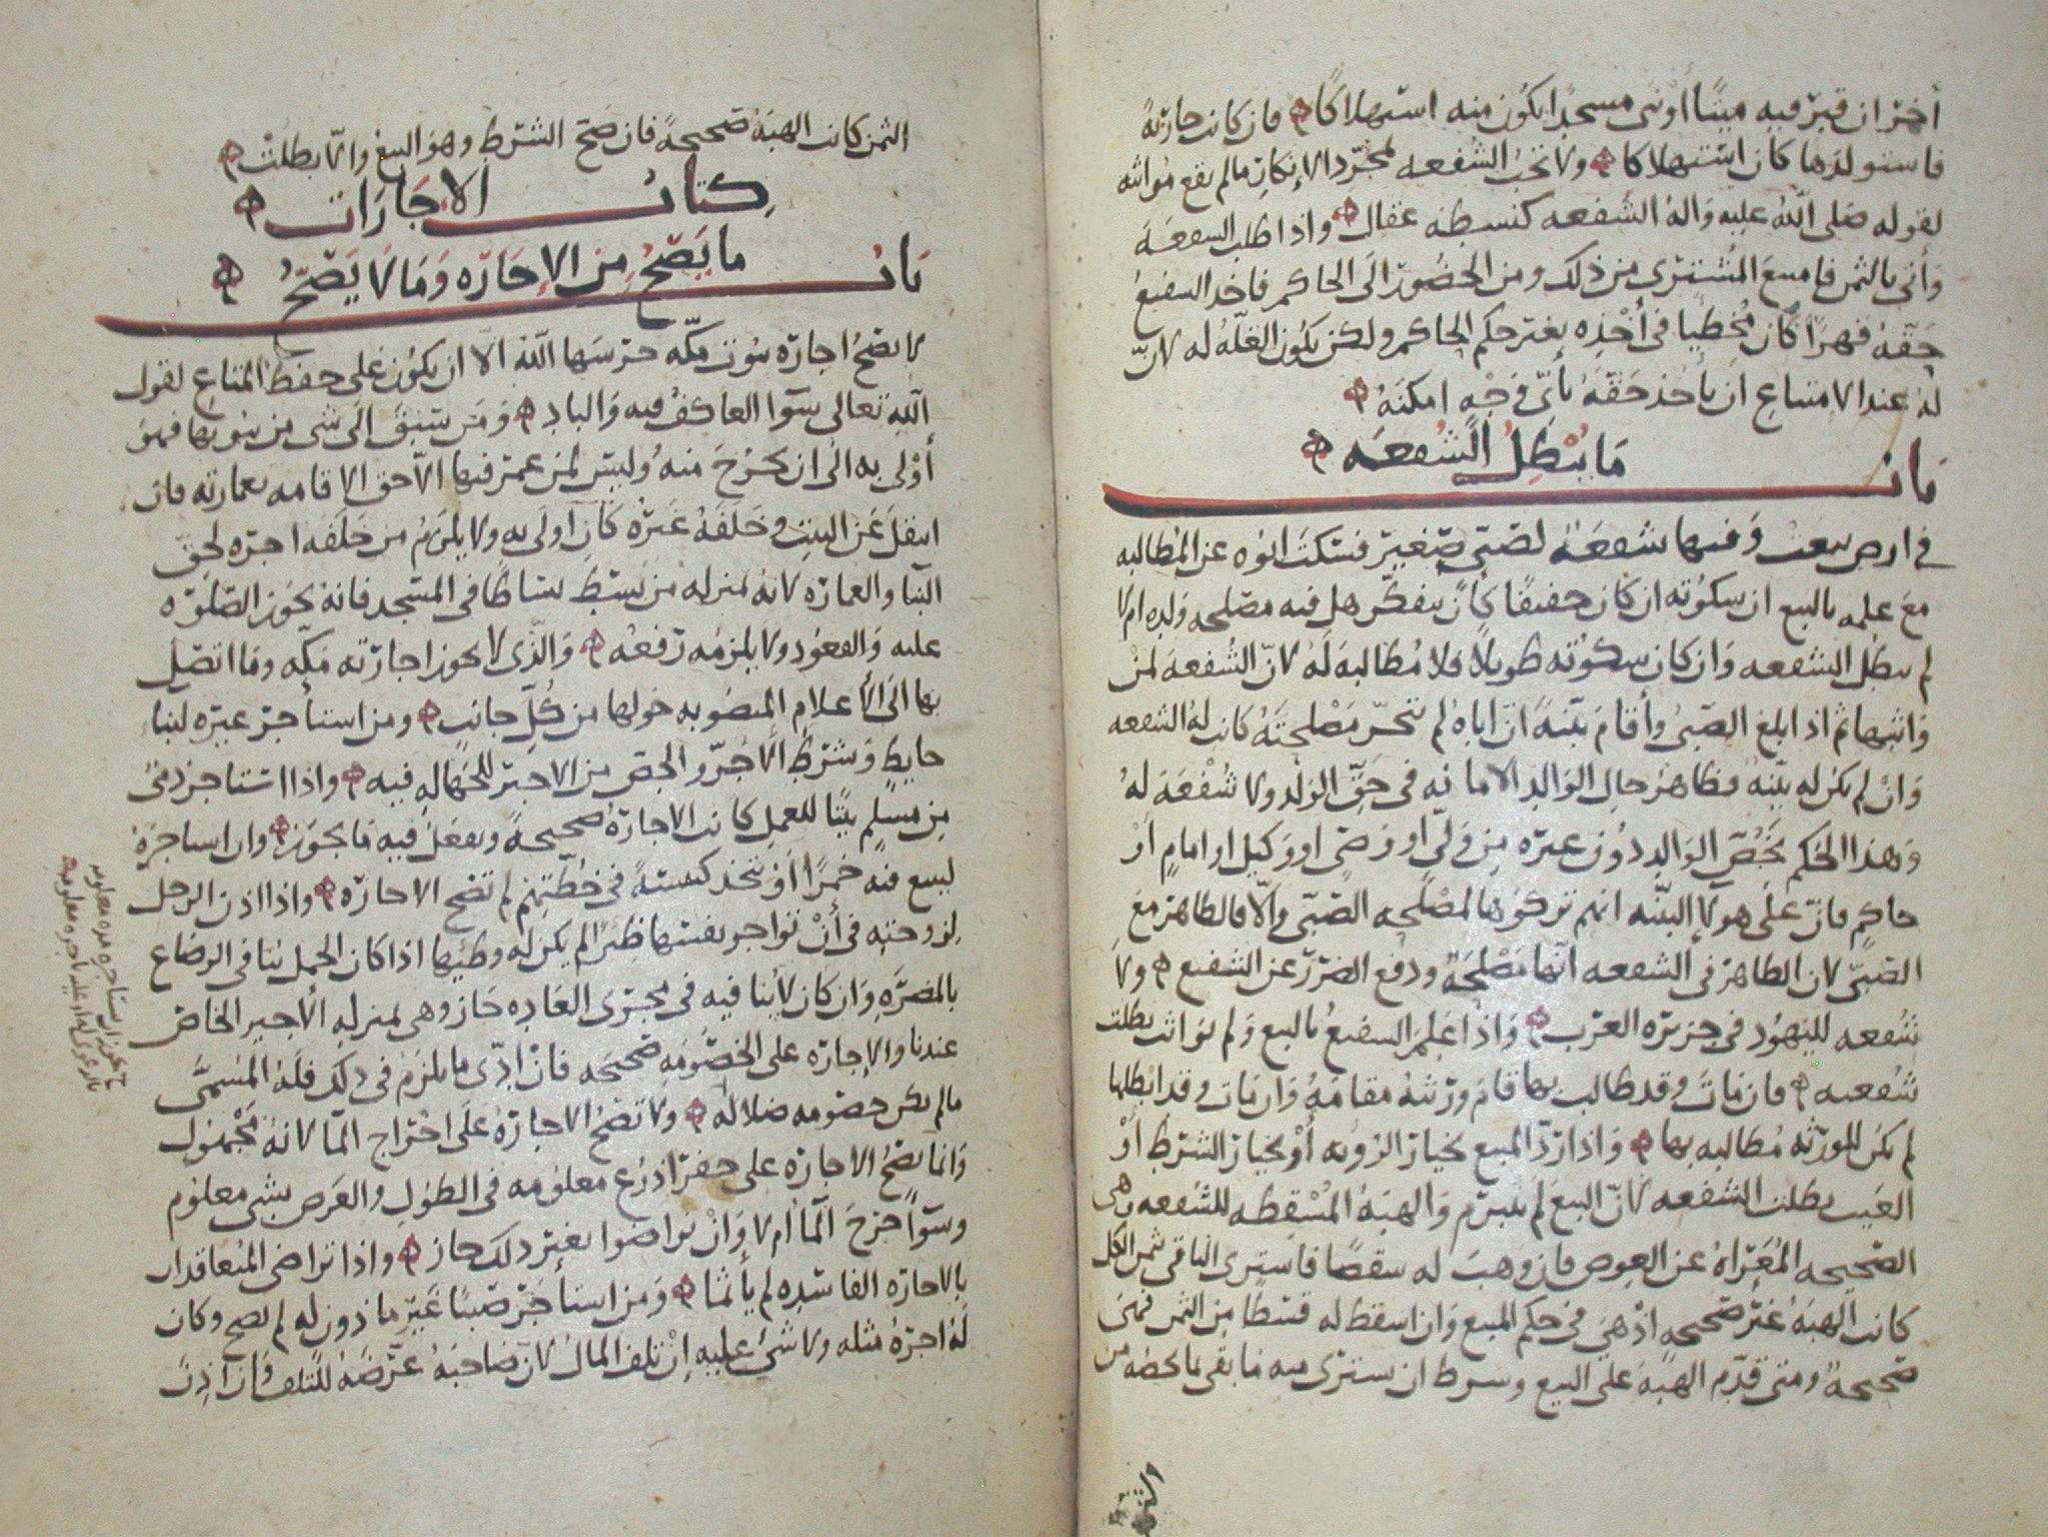 أخر ان قبر فيه ميتًا او بنى مسجدًا يكون منه استهلاكًا فان كانت جارية
فاستولدها كان استهلاكا ولا تجب الشفعه لمجرد الامكان ما لم يقع مواثبه
لقوله صلى الله عليه واله الشفعه كنشطه عقال واذا طلب الشفعه
واتى بالثمن فامتنع المشتري من ذلك ومن الحضور الى الحاكم فاخذ الشفيع
حقه قهرًا كان مخطيا في أخذه بغير حكم الحاكم ولكن يكون الغله له لان
له عند الامتناع ان ياخذ حقه بأيّ وجهٍ امكنه
باب ما يبطل الشفعه
في ارض بيعت وفيها شفعه لصبي صغير فسكت ابوه عن المطالبه
مع علمه بالبيع ان سكوته ان كان خفيفًا كأن يتفكر هل فيه مصلحه ولده ام لا
لم يبطل الشفعه وان كان سكوته طويلًا فلا مطالبه له لان الشفعه لمن
واثبها ثم اذا بلغ الصبي وأقام بينه ان اباه لم يتحر مصلحته كانت له الشفعه
وان لم يكن له بينه فظاهر حال الوالد الامانه في حق الولد ولا شفعه له
وهذا الحكم يخص الوالد دون غيره من ولي او وصي او وكيل او امام او
حاكم فان على هولا البينه انهم تركوها لمصلحه الصبي والا فالظاهر مع
الصبي لان الظاهر في الشفعه انها مصلحه ودفع الضرر عن الشفيع ولا
شفعه لليهود في جزيره العرب واذا علم الشفيع بالبيع ولم يواثب بطلت
شفعته فان مات وقد طالب بها قام ورثته مقامه وان مات وقد ابطلها
لم يكن للورثه مطالبه بها واذا رد المبيع بخيار الرؤيه أو بخيار الشرط أو
العيب بطلت الشفعه لان البيع لم ينبرم والهبه المسقطه للشفعه هي
الصحيحه المعراه عن العوض فان وهب له شقصًا فاشترى الباقي بثمن الكل
كانت الهبه غير صحيحه اذ هي في حكم المبيع وان اسقط له قسطًا من الثمن فهي
صحيحه ومتى قدم الهبه على البيع وشرط ان يشتري منه ما بقي بما يحطه من
الثمن كانت الهبه صحيحةً فان صح الشرط وهو البيع والا بطلت
كتاب الاجارات
باب ما يصح من الاجاره وما لا يصح
لا يصح اجاره بيوت مكه حرسها الله الا ان يكون على حفظ المتاع لقول
الله تعالى سوا العاكف فيه والباد ومن سبق الى شي من بيوتها فهو
أولى به الى ان يخرج منه وليس لمن عمر فيها الا حق الاقامه بعمارته فان
انتقل عن البيت وخلفه غيره كان اولى به ولا يلزم من خلفه اجره لحق
البنا والعماره لانه بمنزله من بسط بساطًا في المسجد فانه يجوز الصلوه
عليه والقعود ولا يلزمه رفعه والذي لا يجوز اجارته مكه وما اتصل
بها الى الأعلام المنصوبه حولها من كل جانب ومن استأجر غيره لبنا
حايطٍ وشرط الاجر والجص من الاجير للجهاله فيه واذا استاجر ذمي
من مسلم بيتًا للعمل كانت الاجاره صحيحةً ويفعل فيه ما يجوز وان استاجره
ليبيع فيه خمرًا أو يتخذ كنيسةً في خطتهم لم تصح الاجاره واذا اذن الرجل
لزوجته في أن تواجر نفسها ظئرًا لم يكن له وطيها اذا كان الحمل بينا في الرضاع
بالمضره وان كان لا بينا فيه في مجرى العاده جاز وهي بمنزله الأجير الخاص
عندنا والاجاره على الخصومه صحيحه فان ادى ما يلزم في ذلك فله المسمى
ما لم يكن خصومه ضلاله ولا تصح الاجاره على اخراج الما لانه مجهول
وانما يصح الاجاره على حفر اذرع معلومه في الطول والعرض بشي معلوم
وسوا خرج الما أم لا وان تراضوا بغير ذلك جاز واذا تراضى المتعاقدان
بالاجاره الفاسده لم يأثما ومن استأجر صبيًا غير ماذون له لم يصح وكان
له اجره مثله ولا شي عليه ان تلف المال لان صاحبه عرضه للتلف فان اذن